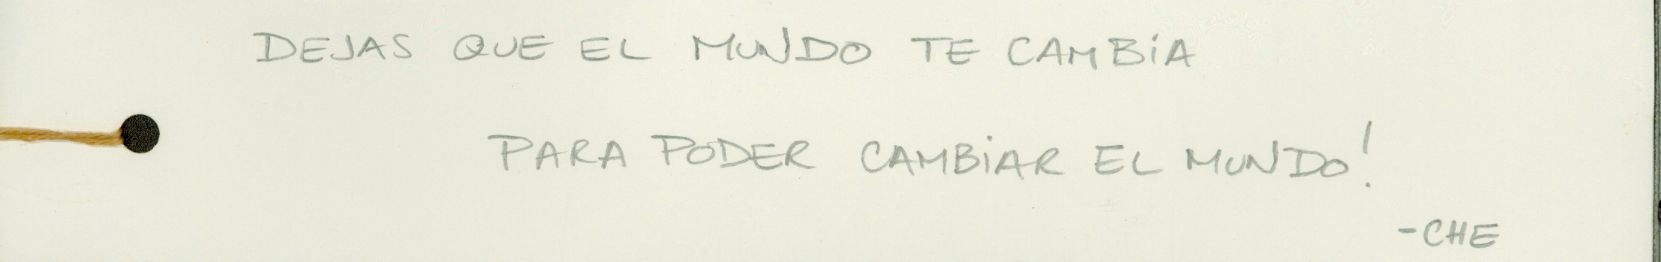 DEJAS QUE EL MUNDO TE CAMBiA
PARA PODER CAMBiAR EL MUNDO!
-CHE